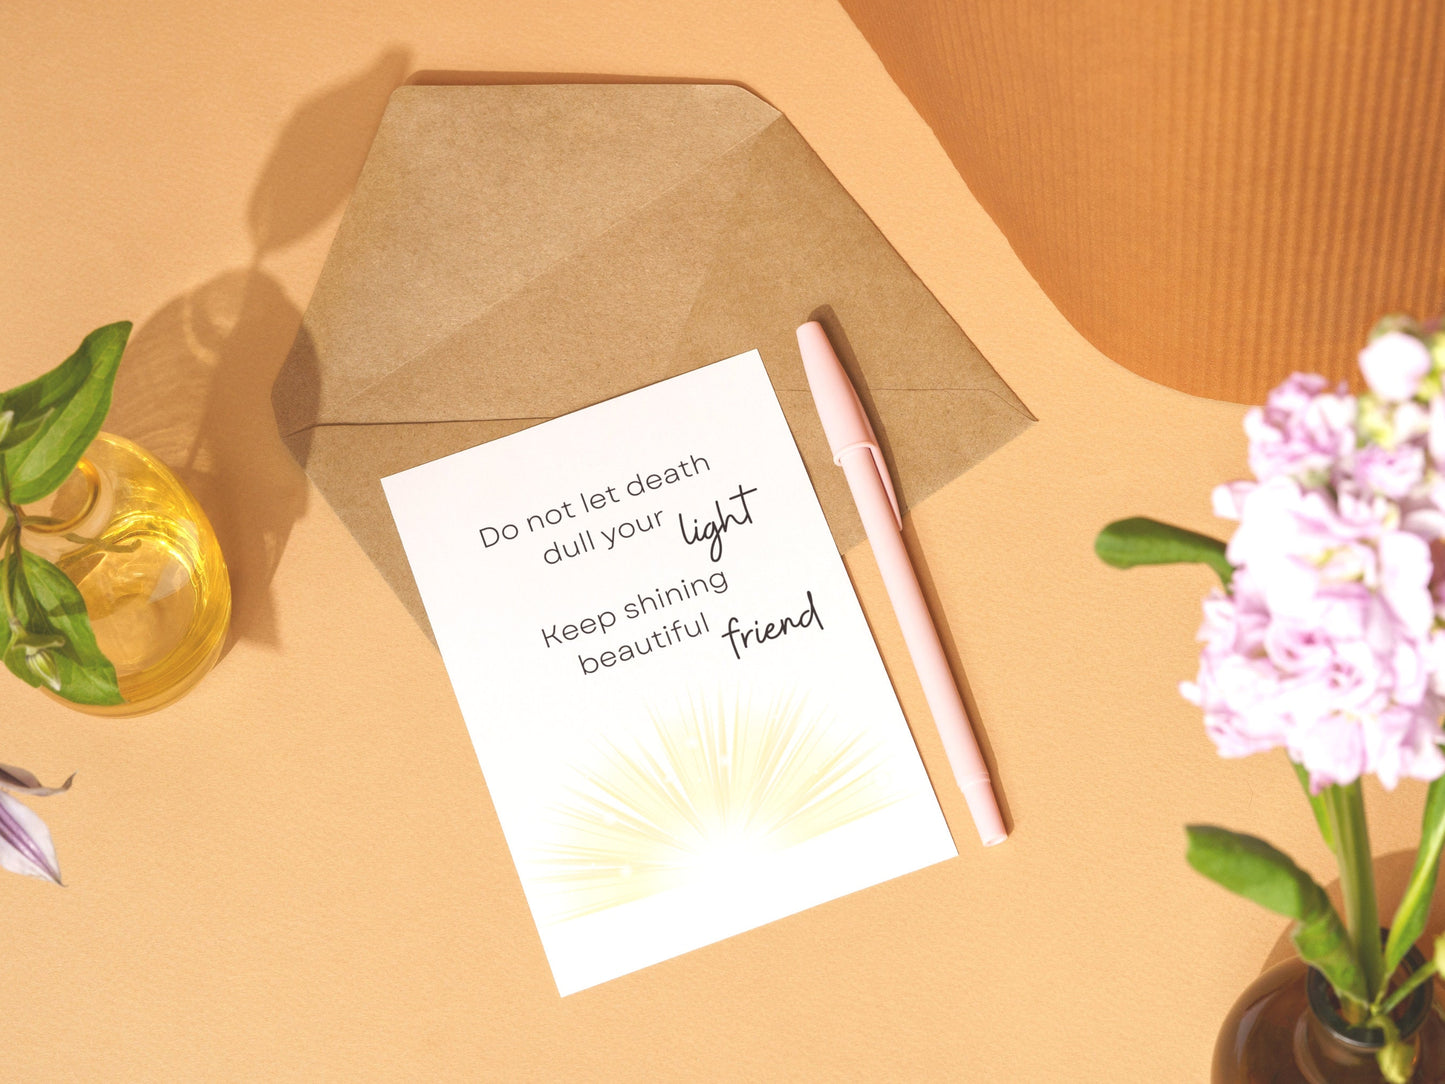 Do not let death
dull your light
Keep shining
beautiful friend